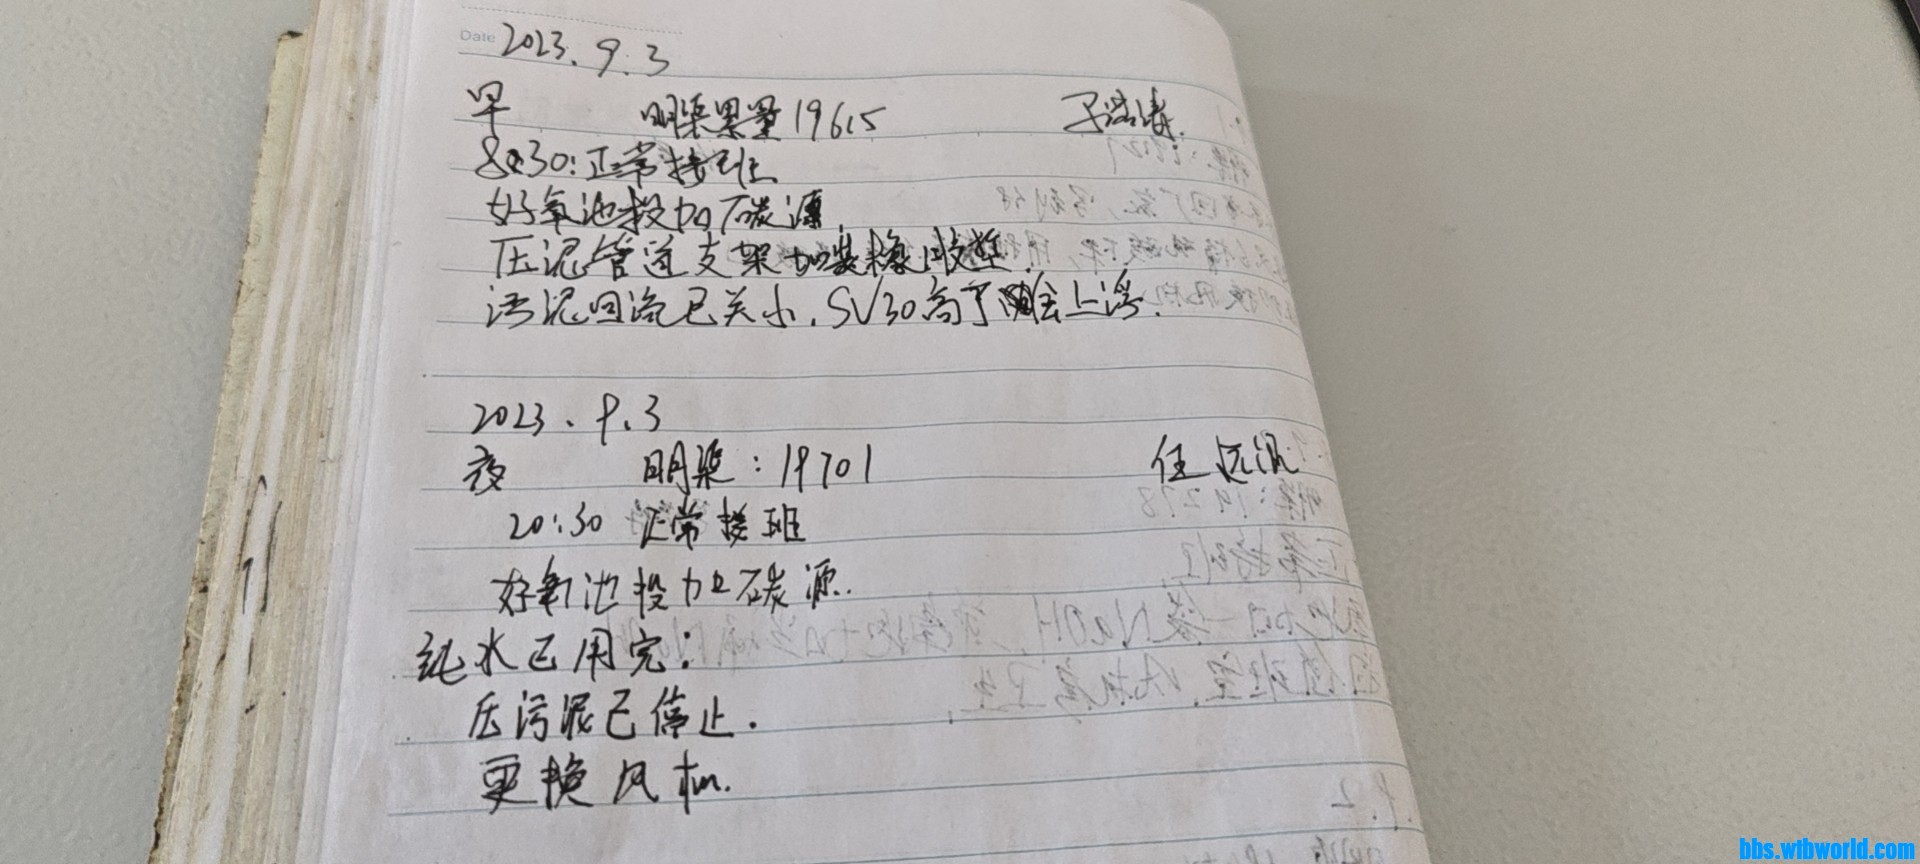 Date 2023.9.3
早 明渠累量19615
8:30:正常接班
好氧池投加碳源
压泥管道支架加装橡胶垫.
污泥回流已关小.SV30高了会上浮.
2023.9.3
夜 明渠:19701 任远汎
20:30 正常接班
好氧池投加碳源.
纯水已用完;
压污泥已停止.
更换风机.
bbs.wtbworld.com